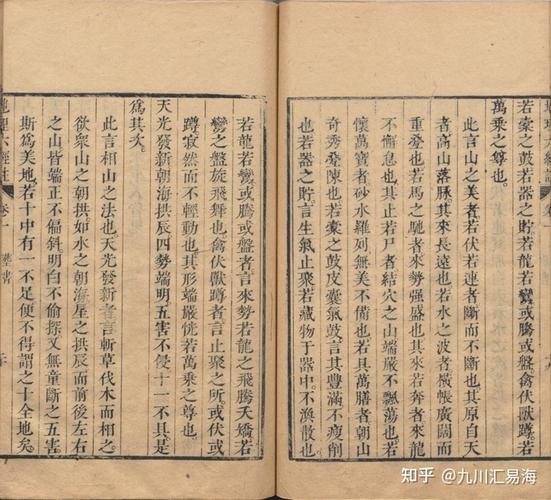 若橐之鼓若器之貯若龍若鸞或騰或盤禽伏獸蹲若
萬乘之尊也
此言山之美者若伏若連者斷而不斷也其原自天
者高山落脈其來長遠也若水之波者橫帳廣闊而
重疊也若馬之馳者來勢强盛也其來若奔者來龍
不懈息也其止若尸者結穴之山端嚴不飄蕩也若
懷萬寶者砂水羅列無美不備也若具萬膳者朝山
奇秀叠陳也若橐之鼓皮囊氣鼓言其豐滿不瘦削
也若器之貯言生氣止聚若藏物于器中不渙散也
若龍若鸞或騰或盤者言來勢若龍之飛騰夭矯若
鸞之盤旋飛舞也禽伏獸蹲者言止聚之所或伏或
蹲寂然而不輕動也其形端嚴侁若萬乘之尊也
天光發新朝海拱辰四勢端明五害不侵十一不具是
爲其次
此言相山之法也天光發新者言斬草伐木而相之
欲衆山之朝拱如水之朝海星之拱辰而前後左右
之山皆端正不偏斜明白不偷探又無童斷之五害
斯爲美地若十中有一不足便不得謂之十全地矣
地理六經註 卷一 葬書
知乎 @九川汇易海